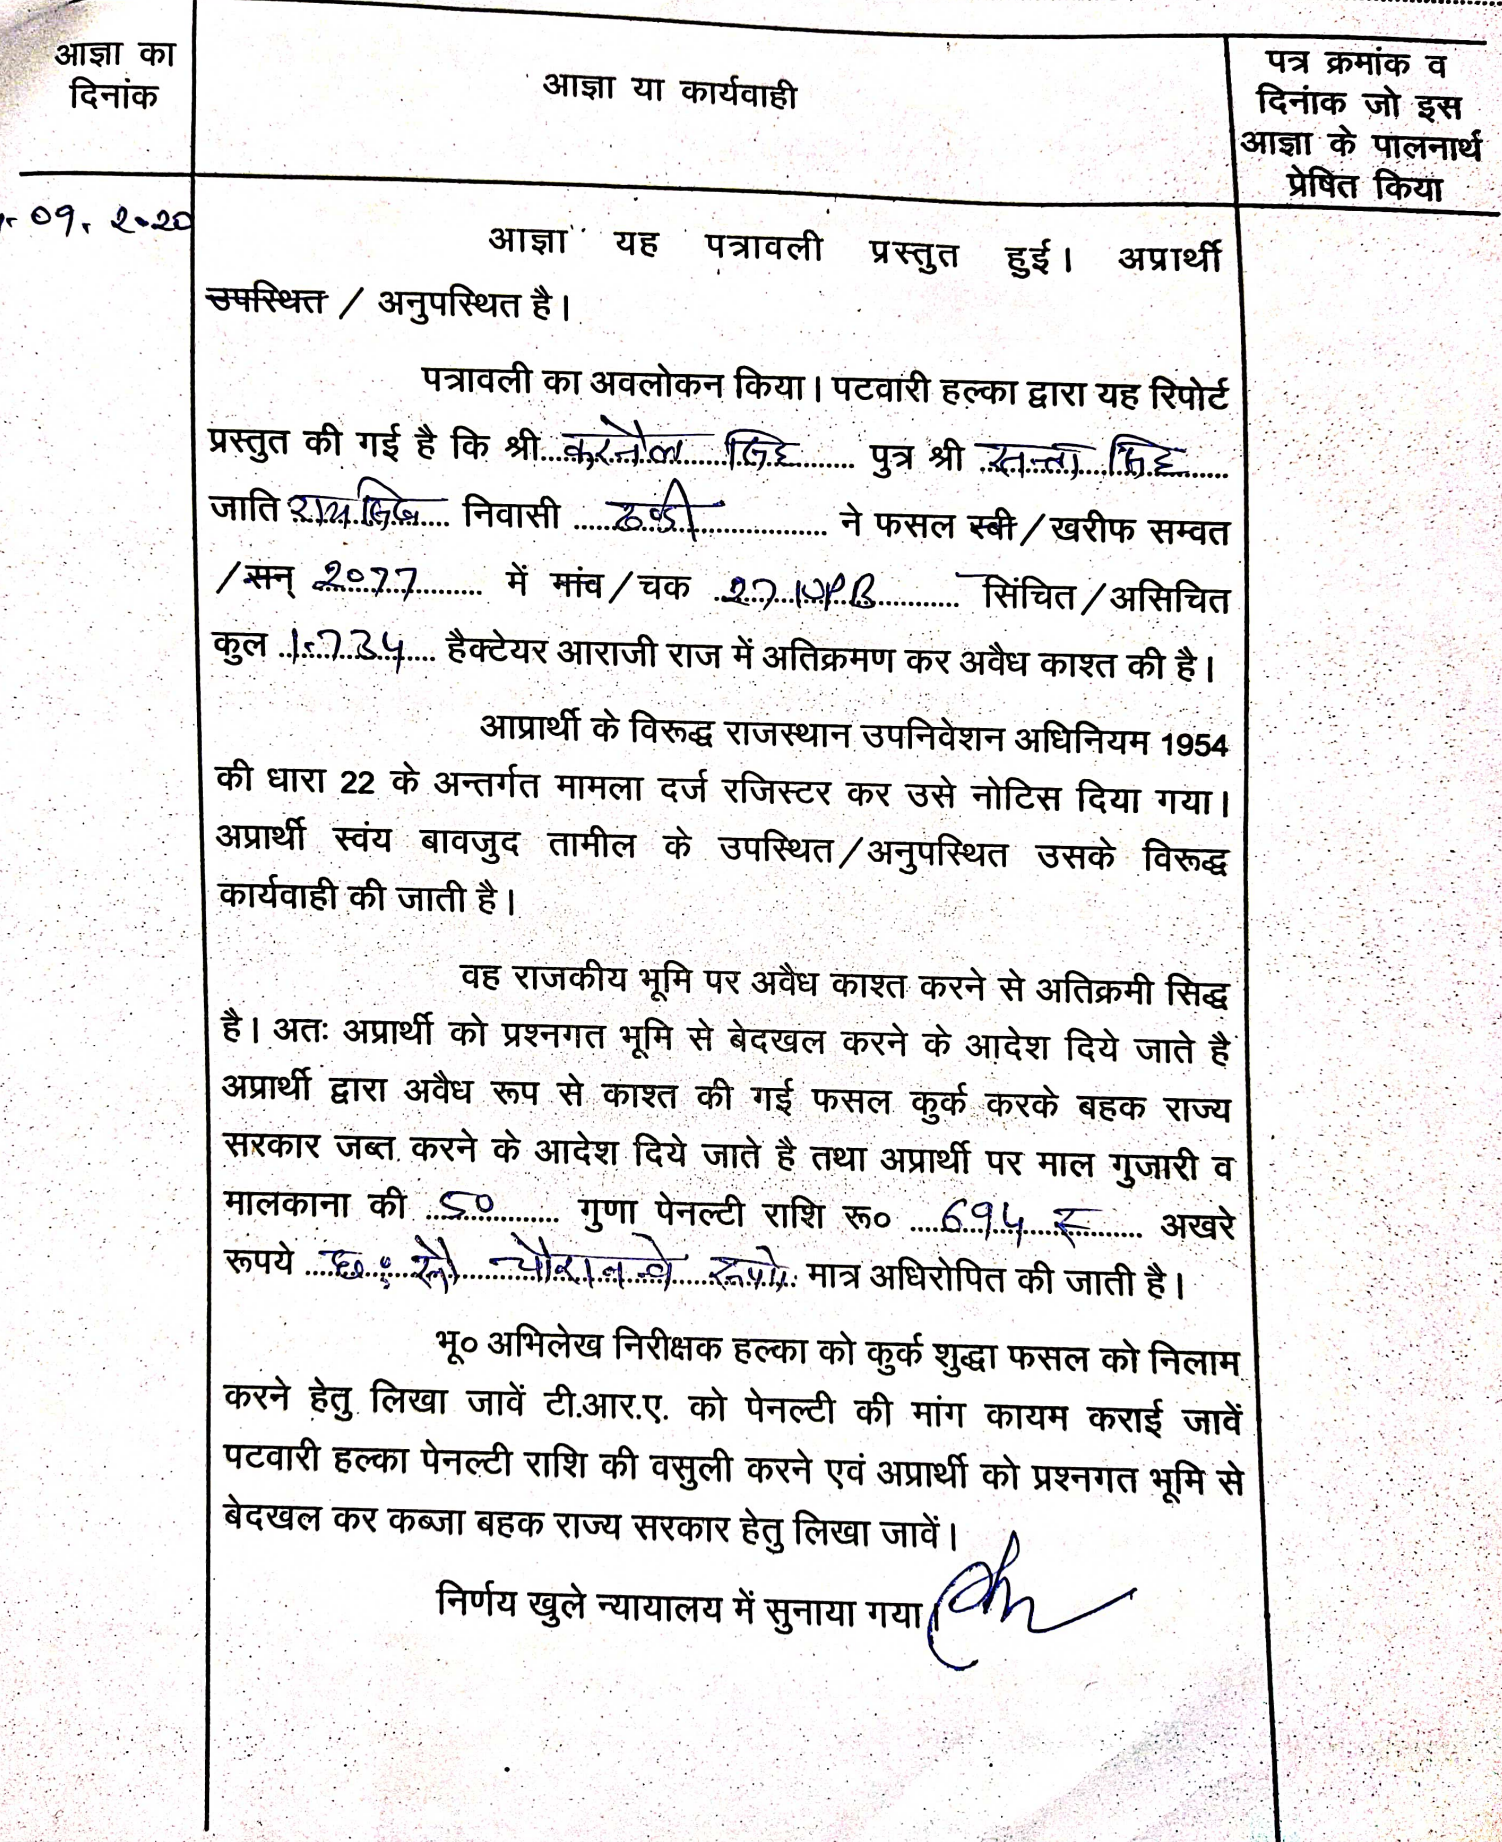 आज्ञा का
दिनांक
आज्ञा या कार्यवाही
पत्र क्रमांक व
दिनांक जो इस
आज्ञा के पालनार्थ
प्रेषित किया
09. 2020
आज्ञा यह पत्रावली प्रस्तुत हुई। अप्रार्थी
उपस्थित / अनुपस्थित है।
पत्रावली का अवलोकन किया। पटवारी हल्का द्वारा यह रिपोर्ट
प्रस्तुत की गई है कि श्री करनैल सिंह पुत्र श्री सन्ता सिंह
जाति रायसिख निवासी ने फसल रबी / खरीफ सम्वत
/ सन् 2077 में गांव / चक 27 सिंचित / असिचित
कुल 1.734 हैक्टेयर आराजी राज में अतिक्रमण कर अवैध काश्त की है।
आप्रार्थी के विरूद्ध राजस्थान उपनिवेशन अधिनियम 1954
की धारा 22 के अन्तर्गत मामला दर्ज रजिस्टर कर उसे नोटिस दिया गया।
अप्रार्थी स्वंय बावजुद तामील के उपस्थित / अनुपस्थित उसके विरूद्ध
कार्यवाही की जाती है।
वह राजकीय भूमि पर अवैध काश्त करने से अतिक्रमी सिद्ध
है। अतः अप्रार्थी को प्रश्नगत भूमि से बेदखल करने के आदेश दिये जाते है
अप्रार्थी द्वारा अवैध रूप से काश्त की गई फसल कुर्क करके बहक राज्य
सरकार जब्त करने के आदेश दिये जाते है तथा अप्रार्थी पर माल गुजारी व
मालकाना की 50 गुणा पेनल्टी राशि रू० 694 रू अखरे
रूपये छः सौ चौरानवे रूपये मात्र अधिरोपित की जाती है।
भू० अभिलेख निरीक्षक हल्का को कुर्क शुद्धा फसल को निलाम
करने हेतु लिखा जावें टी.आर.ए. को पेनल्टी की मांग कायम कराई जावें
पटवारी हल्का पेनल्टी राशि की वसुली करने एवं अप्रार्थी को प्रश्नगत भूमि से
बेदखल कर कब्जा बहक राज्य सरकार हेतु लिखा जावें।
निर्णय खुले न्यायालय में सुनाया गया।